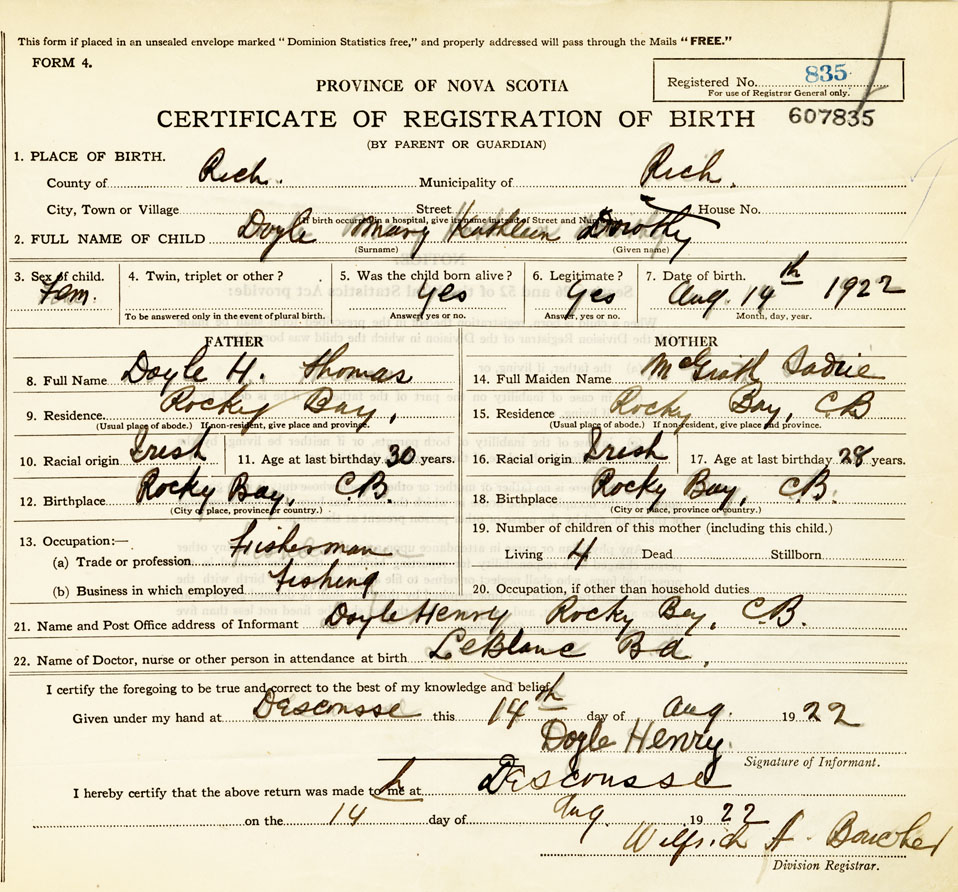 This form if placed in an unsealed envelope marked "Dominion Statistics free," and properly addressed will pass through the Mails "FREE."
FORM 4.
Registered No. 835
For use of Registrar General only.
PROVINCE OF NOVA SCOTIA
CERTIFICATE OF REGISTRATION OF BIRTH 607835
(BY PARENT OR GUARDIAN)
1. PLACE OF BIRTH.
County of Rich. Municipality of Rich.
City, Town or Village Street House No.
(If birth occurred in a hospital, give its name instead of Street and Number)
2. FULL NAME OF CHILD Doyle Mary Kathleen Dorothy
(Surname) (Given name)
3. Sex of child. 4. Twin, triplet or other? 5. Was the child born alive? 6. Legitimate? 7. Date of birth.
Fem. Yes Yes Aug. 14th 1922
To be answered only in the event of plural birth. Answer, yes or no. Answer, yes or no. Month, day, year.
FATHER MOTHER
8. Full Name Doyle H. Thomas 14. Full Maiden Name McGrath Sadie
9. Residence Rocky Bay, 15. Residence Rocky Bay, CB
(Usual place of abode.) If non-resident, give place and province. (Usual place of abode.) If non-resident, give place and province.
10. Racial origin Irish 11. Age at last birthday 30 years. 16. Racial origin Irish 17. Age at last birthday 28 years.
12. Birthplace Rocky Bay, C.B. 18. Birthplace Rocky Bay, CB.
(City or place, province or country.) (City or place, province or country.)
13. Occupation:— 19. Number of children of this mother (including this child.)
(a) Trade or profession Fisherman Living 4 Dead Stillborn
(b) Business in which employed Fishing 20. Occupation, if other than household duties
21. Name and Post Office address of Informant Doyle Henry Rocky Bay, C.B.
22. Name of Doctor, nurse or other person in attendance at birth LeBlanc
I certify the foregoing to be true and correct to the best of my knowledge and belief.
Given under my hand at Descousse this 14th day of Aug. 1922
Doyle Henry.
Signature of Informant.
I hereby certify that the above return was made to me at Descousse
on the 14 day of Aug. 1922
Wilfrid A. Boucher
Division Registrar.